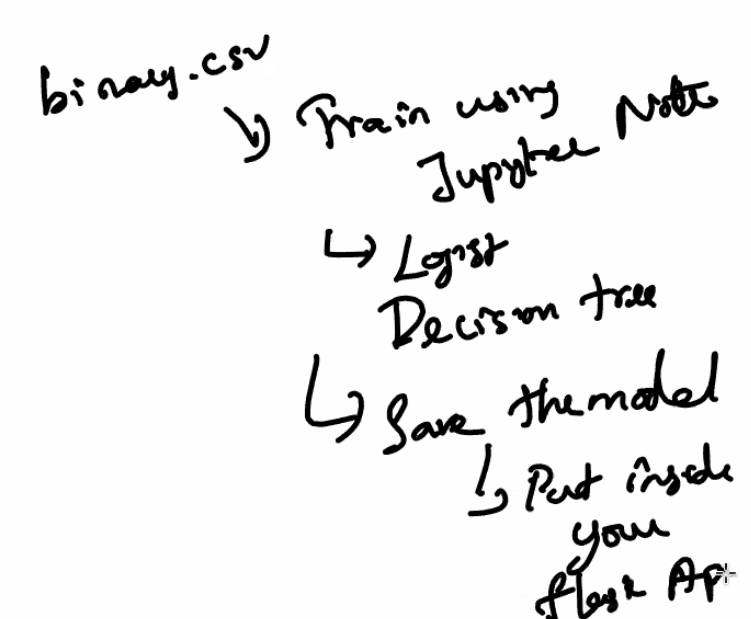 binary.csv
Train using
Jupyter Note
Logist
Decision tree
Save the model
Put inside
your
flask Ap